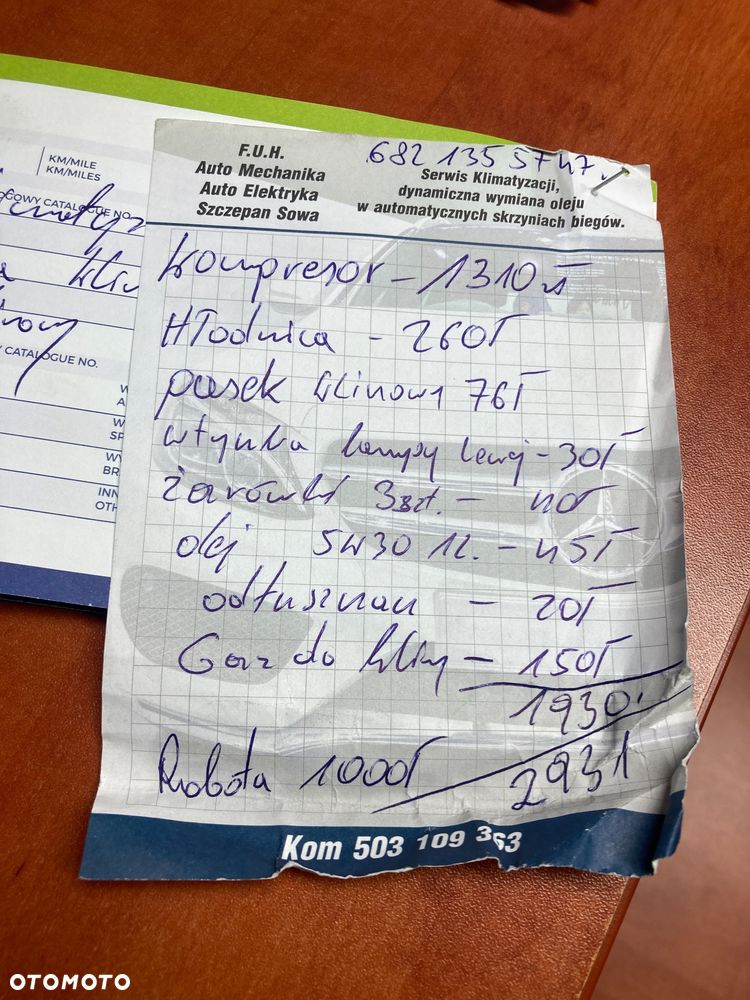 KM/MILE
KM/MILES
GOWY CATALOGUE NO.
Y CATALOGUE NO.
W
A
W
SP
WY
BR
INN
OTH
F.U.H.
Auto Mechanika
Auto Elektryka
Szczepan Sowa
682 135 57 47
Serwis Klimatyzacji,
dynamiczna wymiana oleju
w automatycznych skrzyniach biegów.
kompresor - 1310 zł
Hłodnica - 260
pasek klinowy 76
wtynka lampy lewej - 30
żarówki 3szt. - 40
olej 5W30 1L. - 45
odtłuszcz - 20
Gaz do klimy - 150
1930
Robota 1000 2931
Kom 503 109 363
OTOMOTO